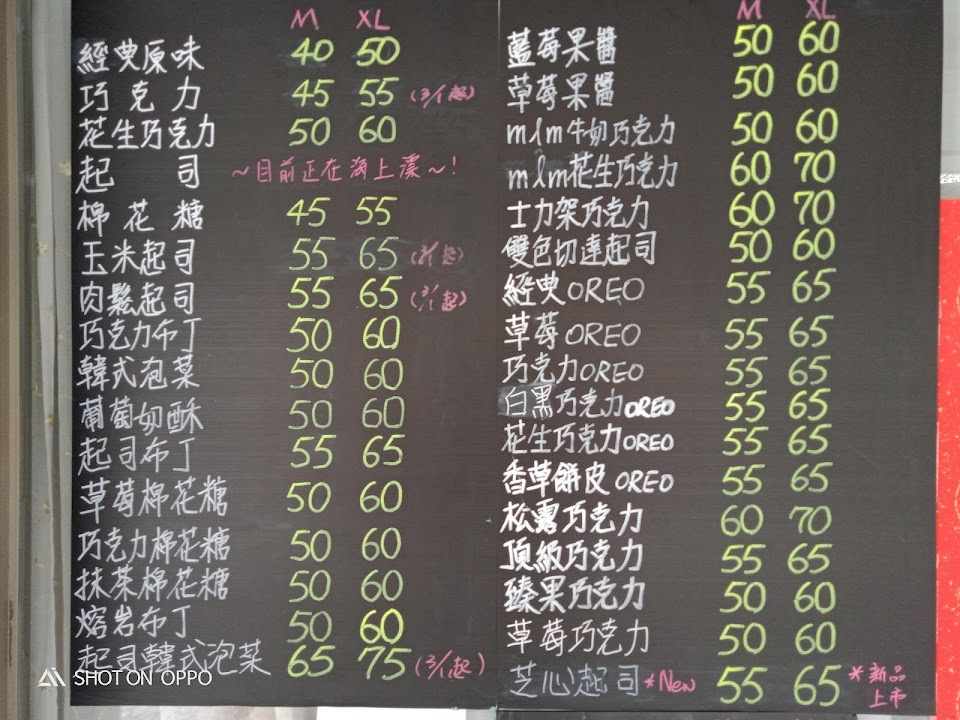 M XL
經典原味 40 50
巧克力 45 55 (3/1起)
花生巧克力 50 60
起司 ~目前正在海上漂~!
棉花糖 45 55
玉米起司 55 65 (3/1起)
肉鬆起司 55 65 (3/1起)
巧克力布丁 50 60
韓式泡菜 50 60
葡萄奶酥 50 60
起司布丁 55 65
草莓棉花糖 50 60
巧克力棉花糖 50 60
抹茶棉花糖 50 60
熔岩布丁 50 60
起司韓式泡菜 65 75 (3/1起)
M XL
藍莓果醬 50 60
草莓果醬 50 60
m&m牛奶巧克力 50 60
m&m花生巧克力 60 70
士力架巧克力 60 70
雙色切達起司 50 60
經典OREO 55 65
草莓OREO 55 65
巧克力OREO 55 65
白黑巧克力OREO 55 65
花生巧克力OREO 55 65
香草餅皮OREO 55 65
松露巧克力 60 70
頂級巧克力 55 65
臻果巧克力 50 60
草莓巧克力 50 60
芝心起司 *New 55 65 *新品上市
SHOT ON OPPO